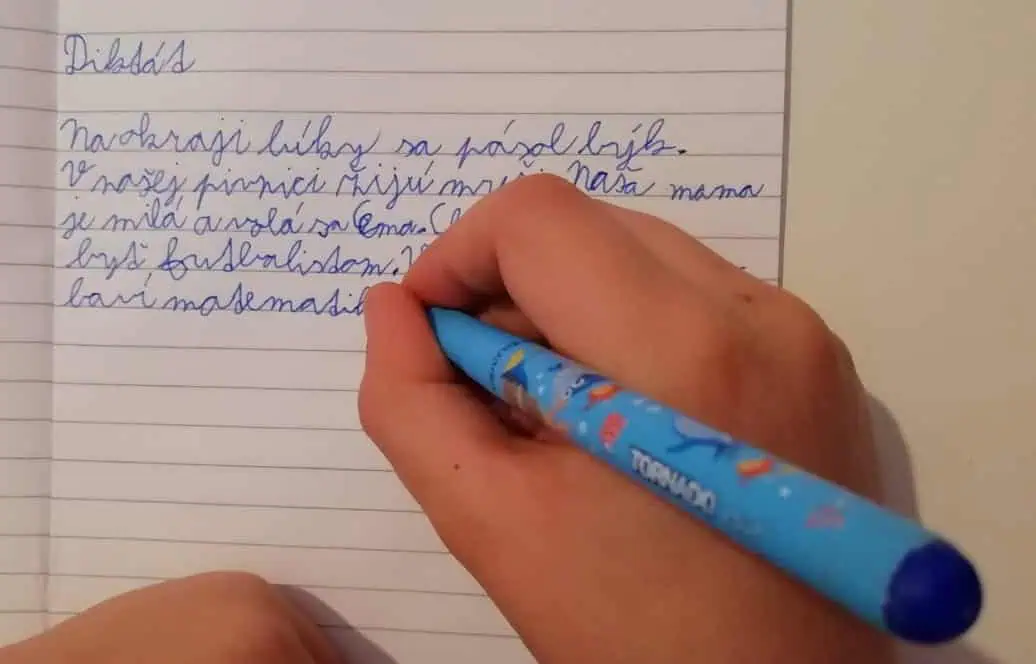 Diktát
Na okraji lúky sa pásol býk.
V našej pivnici žijú Naša mama
je milá a volá sa Ema.
byť futbalistom.
baví
TORNADO